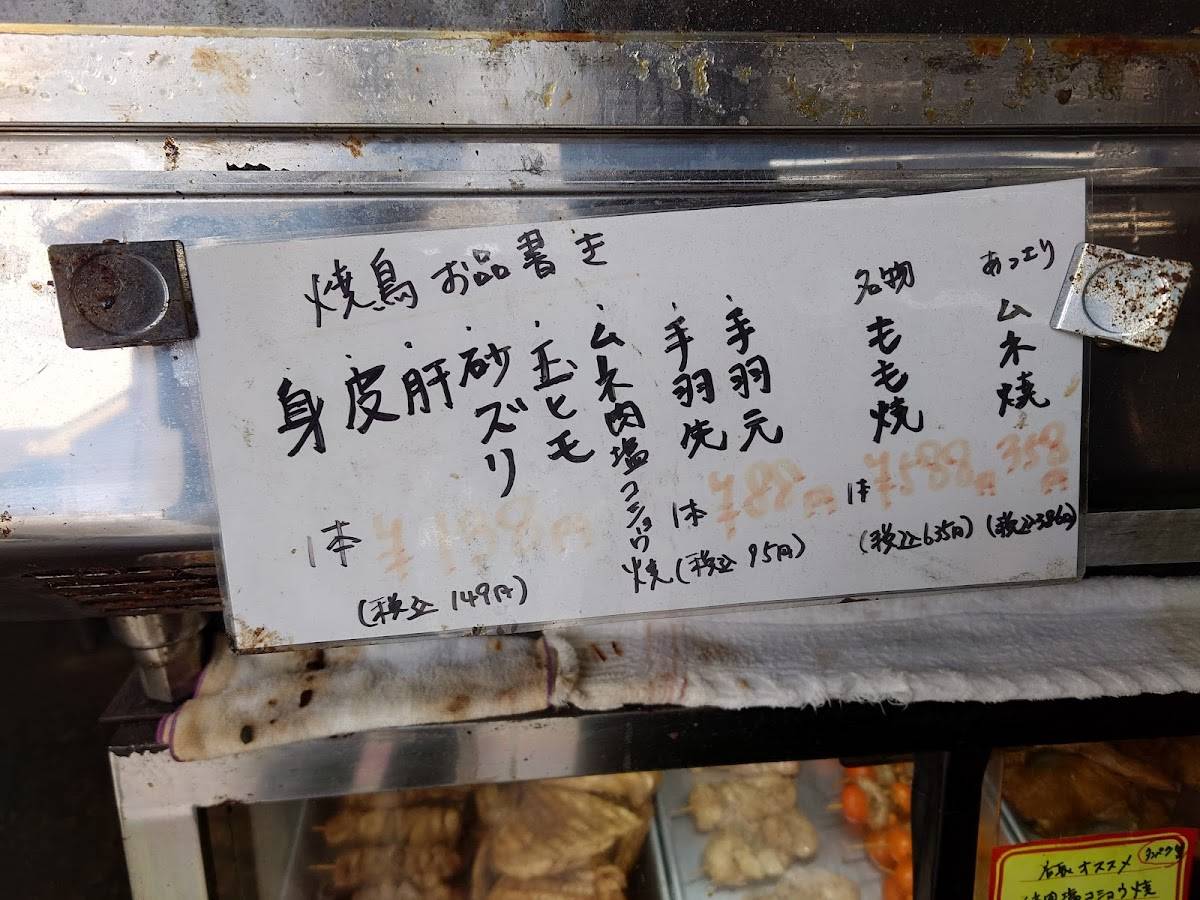 焼鳥 お品書き
あっさり
ムネ焼
358円
(税込386円)
名物
もも焼
1本 ¥588円
(税込635円)
・手羽元
・手羽先
1本 ¥88円
(税込 95円)
・ムネ肉塩コショウ焼
・玉ヒモ
・砂ズリ
・肝
・皮
・身
1本 ¥138円
(税込 149円)
店長オススメ
肉塩コショウ焼